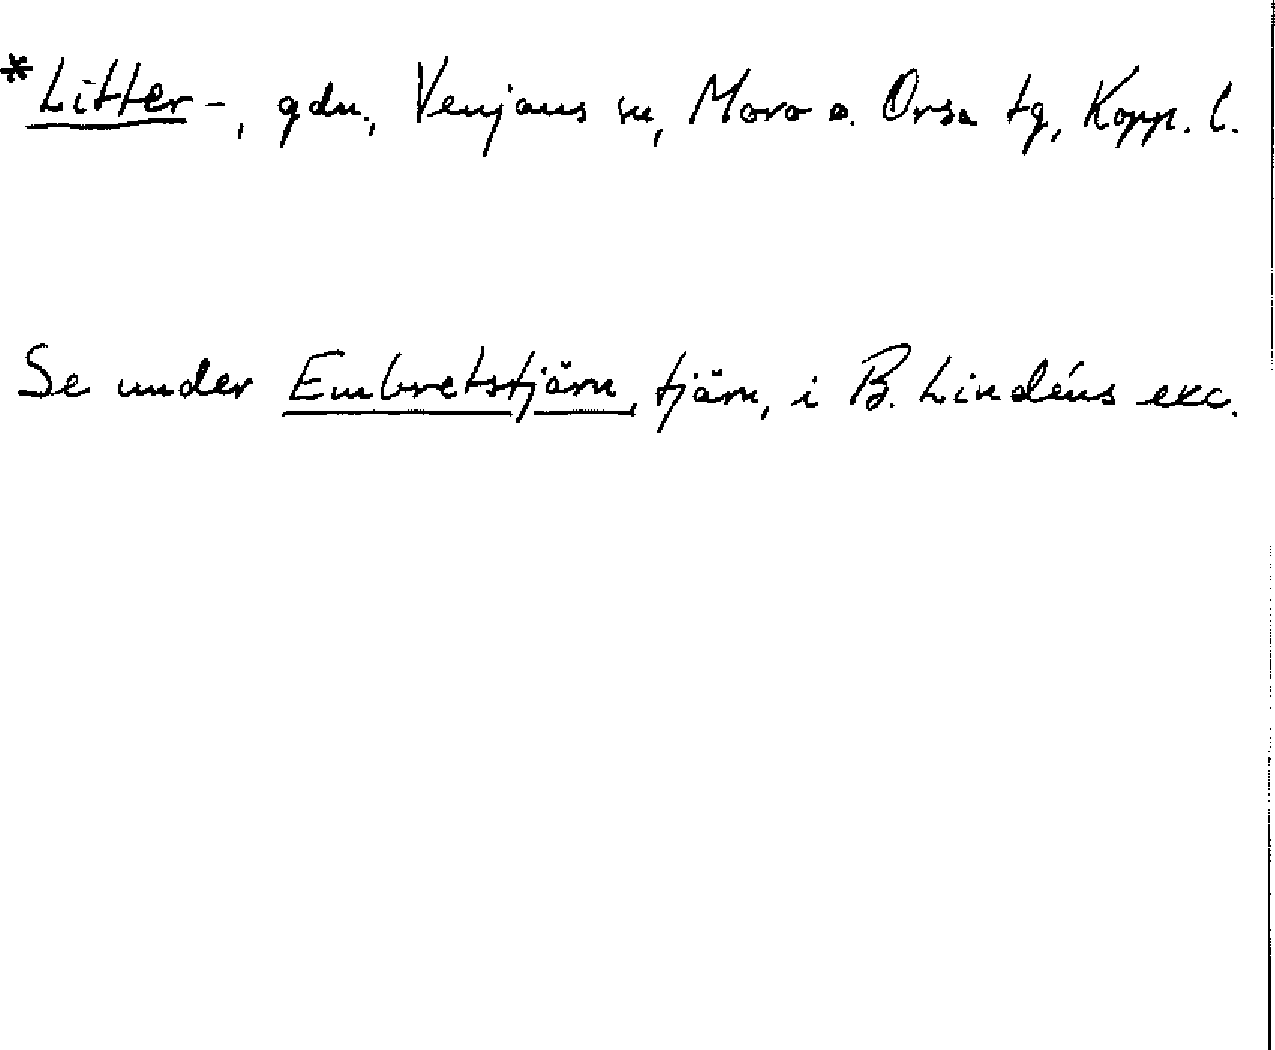 *Litter-, gdn., Venjans sn, Mora o. Orsa tg, Kopp. l.
Se under Embretstjärn, tjärn, i B. Lindéns exc.